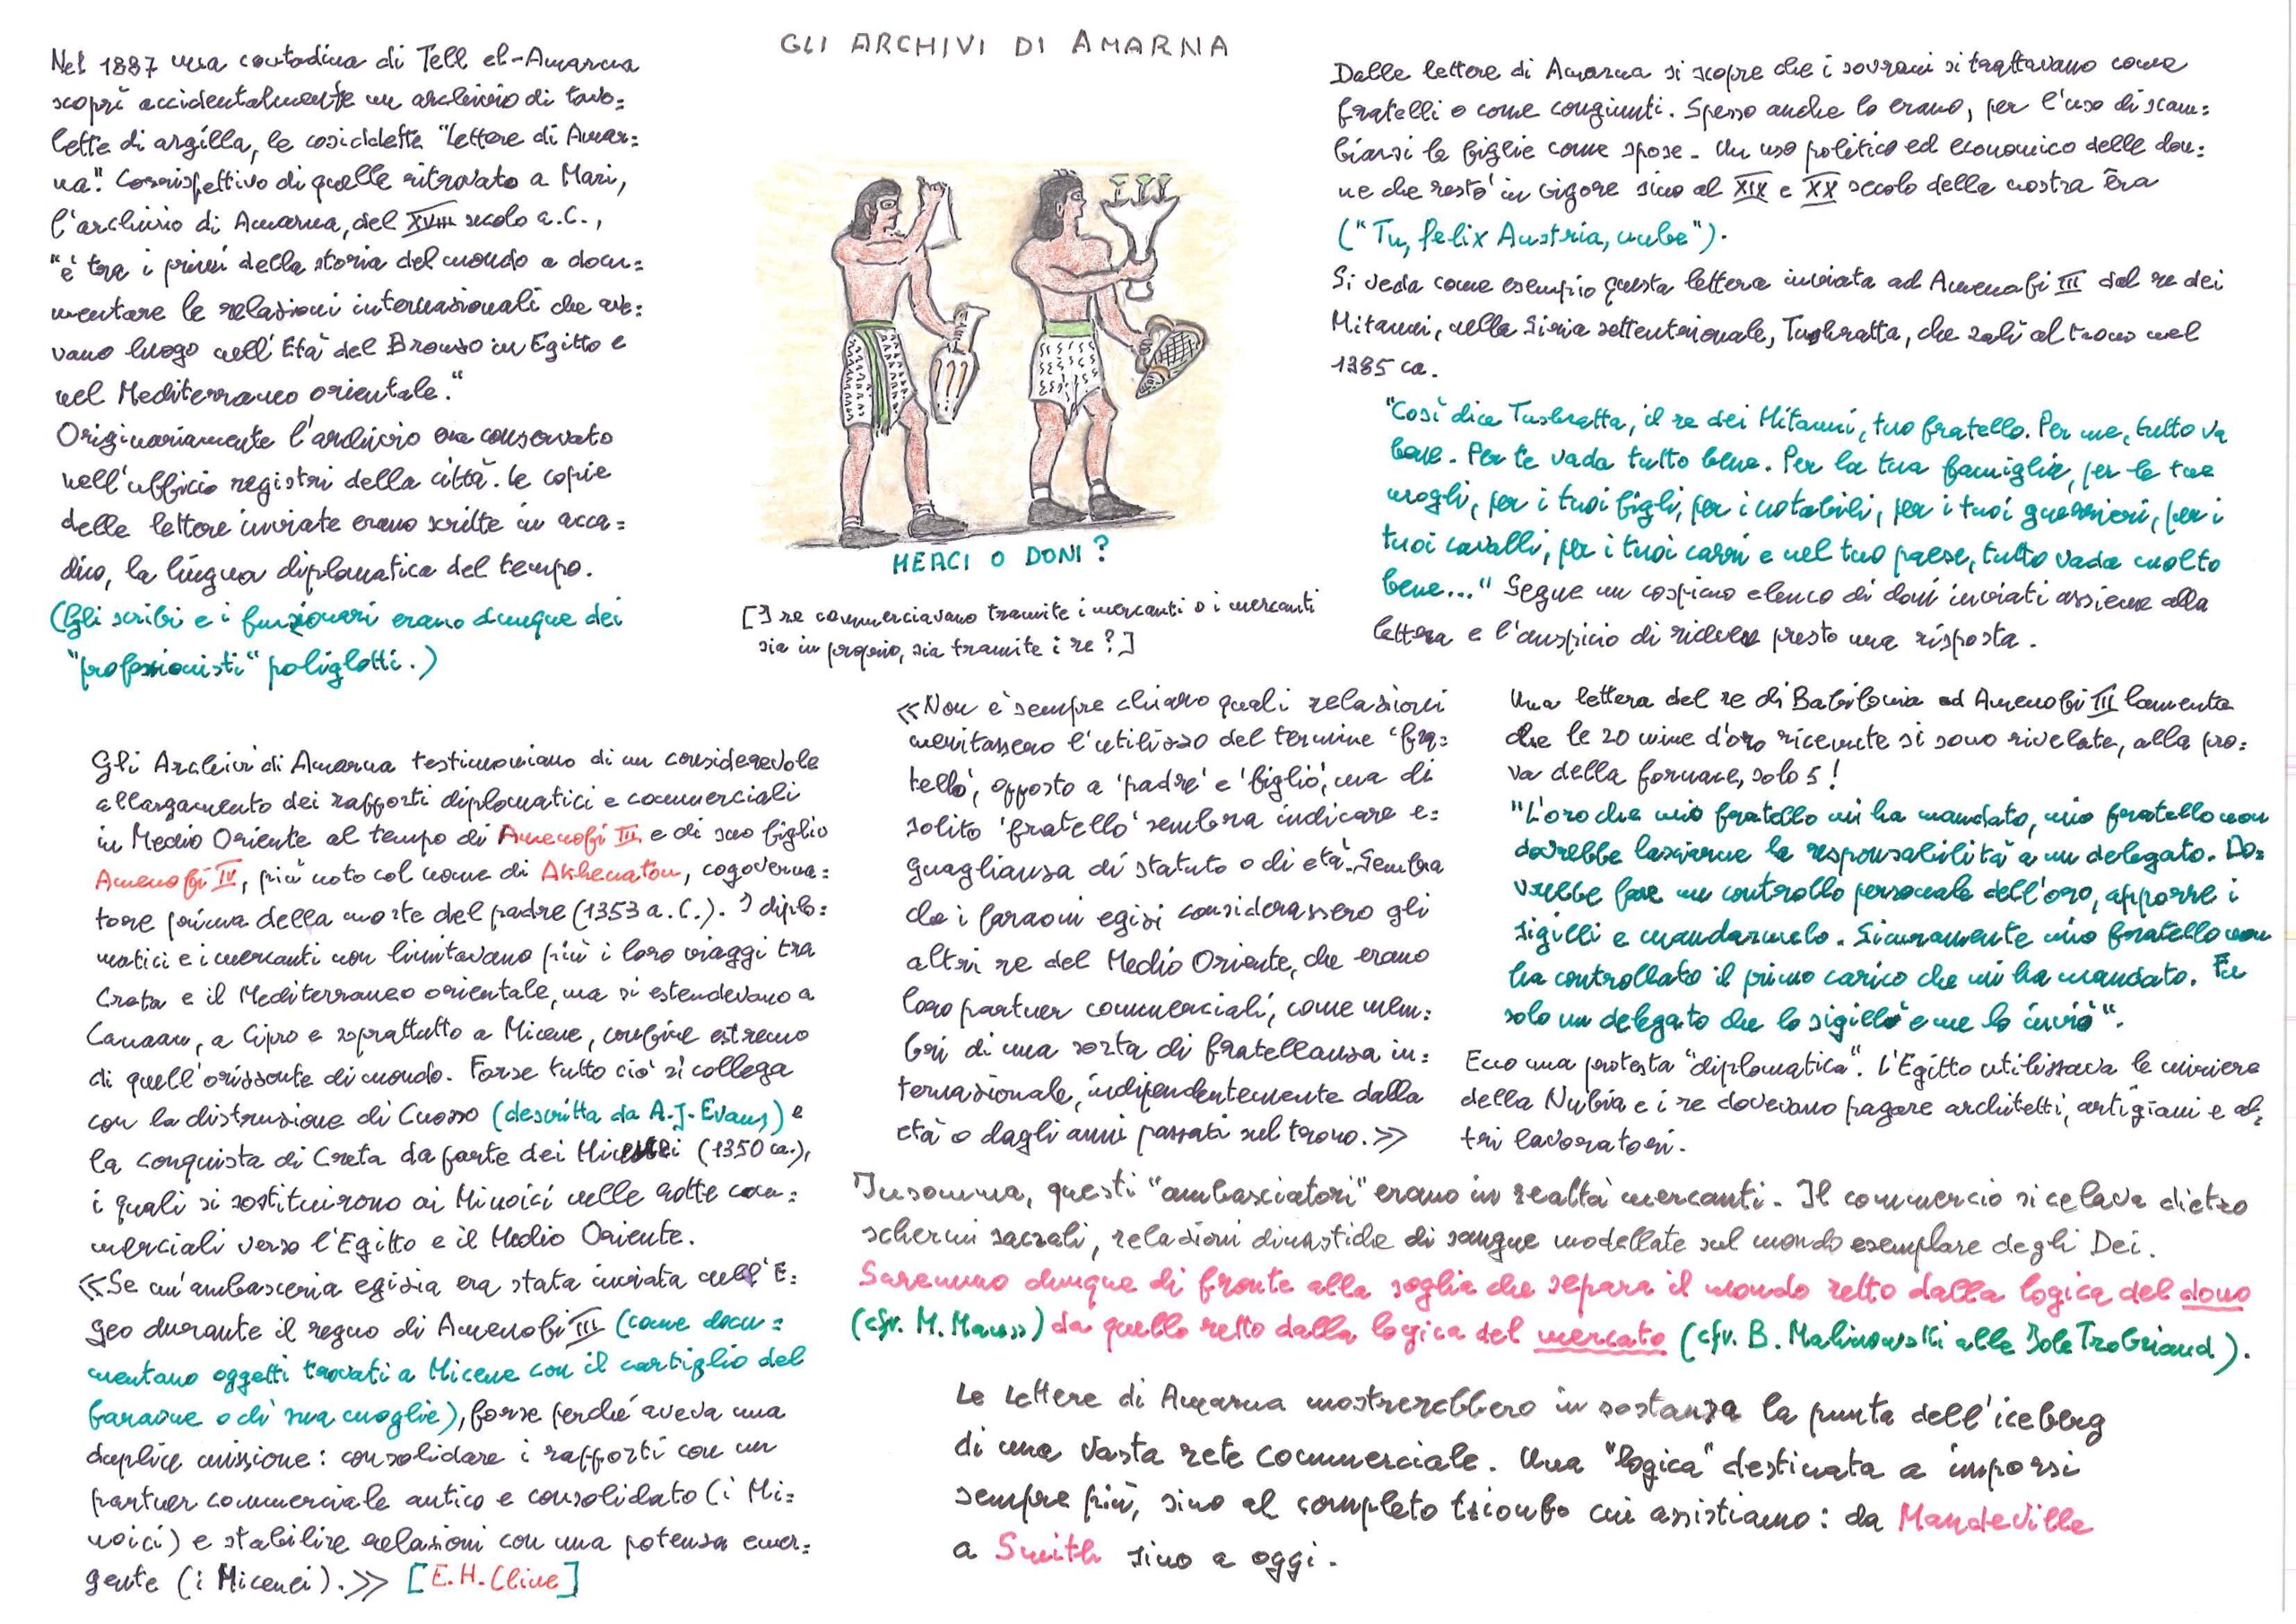 GLI ARCHIVI DI AMARNA
Nel 1887 una contadina di Tell el-Amarna
scoprì accidentalmente un archivio di tavo=
lette di argilla, le cosiddette "lettere di Amar=
na". Corrispettivo di quelle ritrovate a Mari,
l'archivio di Amarna, del XVIII secolo a.C.,
"è tra i primi della storia del mondo a docu=
mentare le relazioni internazionali che ave=
vano luogo nell'Età del Bronzo in Egitto e
nel Mediterraneo orientale."
Originariamente l'archivio era conservato
nell'ufficio registri della città. Le copie
delle lettere inviate erano scritte in acca=
dico, la lingua diplomatica del tempo.
(Gli scribi e i funzionari erano dunque dei
"professionisti" poliglotti.)
Gli Archivi di Amarna testimoniano di un considerevole
allargamento dei rapporti diplomatici e commerciali
in Medio Oriente al tempo di Amenofi III e di suo figlio
Amenofi IV, più noto col nome di Akhenaton, cogoverna=
tore prima della morte del padre (1353 a.C.). I diplo=
matici e i mercanti non limitavano più i loro viaggi tra
Creta e il Mediterraneo orientale, ma si estendevano a
Canaan, a Cipro e soprattutto a Micene, confine estremo
di quell'orizzonte di mondo. Forse tutto ciò si collega
con la distruzione di Cnosso (descritta da A.J. Evans) e
la conquista di Creta da parte dei Micenei (1350 ca.),
i quali si sostituirono ai Minoici nelle rotte com=
merciali verso l'Egitto e il Medio Oriente.
≪Se un'ambasceria egizia era stata inviata nell'E=
geo durante il regno di Amenofi III (come docu=
mentano oggetti trovati a Micene con il cartiglio del
faraone o di sua moglie), forse perché aveva una
duplice missione: consolidare i rapporti con un
partner commerciale antico e consolidato (i Mi=
noici) e stabilire relazioni con una potenza emer=
gente (i Micenei).≫ [E.H. Cline]
MERCI O DONI?
[I re commerciavano tramite i mercanti o i mercanti
sia in proprio, sia tramite i re?]
≪Non è sempre chiaro quali relazioni
meritassero l'utilizzo del termine 'fra=
tello', opposto a 'padre' e 'figlio', ma di
solito 'fratello' sembra indicare e=
guaglianza di statuto o di età. Sembra
che i faraoni egizi considerassero gli
altri re del Medio Oriente, che erano
loro partner commerciali, come mem=
bri di una sorta di fratellanza in=
ternazionale, indipendentemente dalla
età o dagli anni passati sul trono.≫
Dalle lettere di Amarna si scopre che i sovrani si trattavano come
fratelli o come congiunti. Spesso anche lo erano, per l'uso di scam=
biarsi le figlie come spose. Un uso politico ed economico delle don=
ne che restò in vigore sino al XIX e XX secolo della nostra èra
("Tu, felix Austria, nube").
Si veda come esempio questa lettera inviata ad Amenofi III dal re dei
Mitanni, nella Siria settentrionale, Tushratta, che salì al trono nel
1385 ca.
"Così dice Tushratta, il re dei Mitanni, tuo fratello. Per me, tutto va
bene. Per te vada tutto bene. Per la tua famiglia, per le tue
mogli, per i tuoi figli, per i notabili, per i tuoi guerrieri, per i
tuoi cavalli, per i tuoi carri e nel tuo paese, tutto vada molto
bene..." Segue un cospicuo elenco di doni inviati assieme alla
lettera e l'auspicio di ricevere presto una risposta.
Una lettera del re di Babilonia ad Amenofi III lamenta
che le 20 mine d'oro ricevute si sono rivelate, alla pro=
va della fornace, solo 5!
"L'oro che mio fratello mi ha mandato, mio fratello non
dovrebbe lasciarne la responsabilità a un delegato. Do=
vrebbe fare un controllo personale dell'oro, apporre i
sigilli e mandarmelo. Sicuramente mio fratello non
ha controllato il primo carico che mi ha mandato. Fu
solo un delegato che lo sigillò e me lo inviò".
Ecco una protesta "diplomatica". L'Egitto utilizzava le miniere
della Nubia e i re dovevano pagare architetti, artigiani e al=
tri lavoratori.
Insomma, questi "ambasciatori" erano in realtà mercanti. Il commercio si celava dietro
schermi sacrali, relazioni dinastiche di sangue modellate sul mondo esemplare degli Dei.
Saremmo dunque di fronte alla soglia che separa il mondo retto dalla logica del dono
(cfr. M. Mauss) da quello retto dalla logica del mercato (cfr. B. Malinowski alle Isole Trobriand).
Le Lettere di Amarna mostrerebbero in sostanza la punta dell'iceberg
di una vasta rete commerciale. Una "logica" destinata a imporsi
sempre più, sino al completo trionfo cui assistiamo: da Mandeville
a Smith sino a oggi.